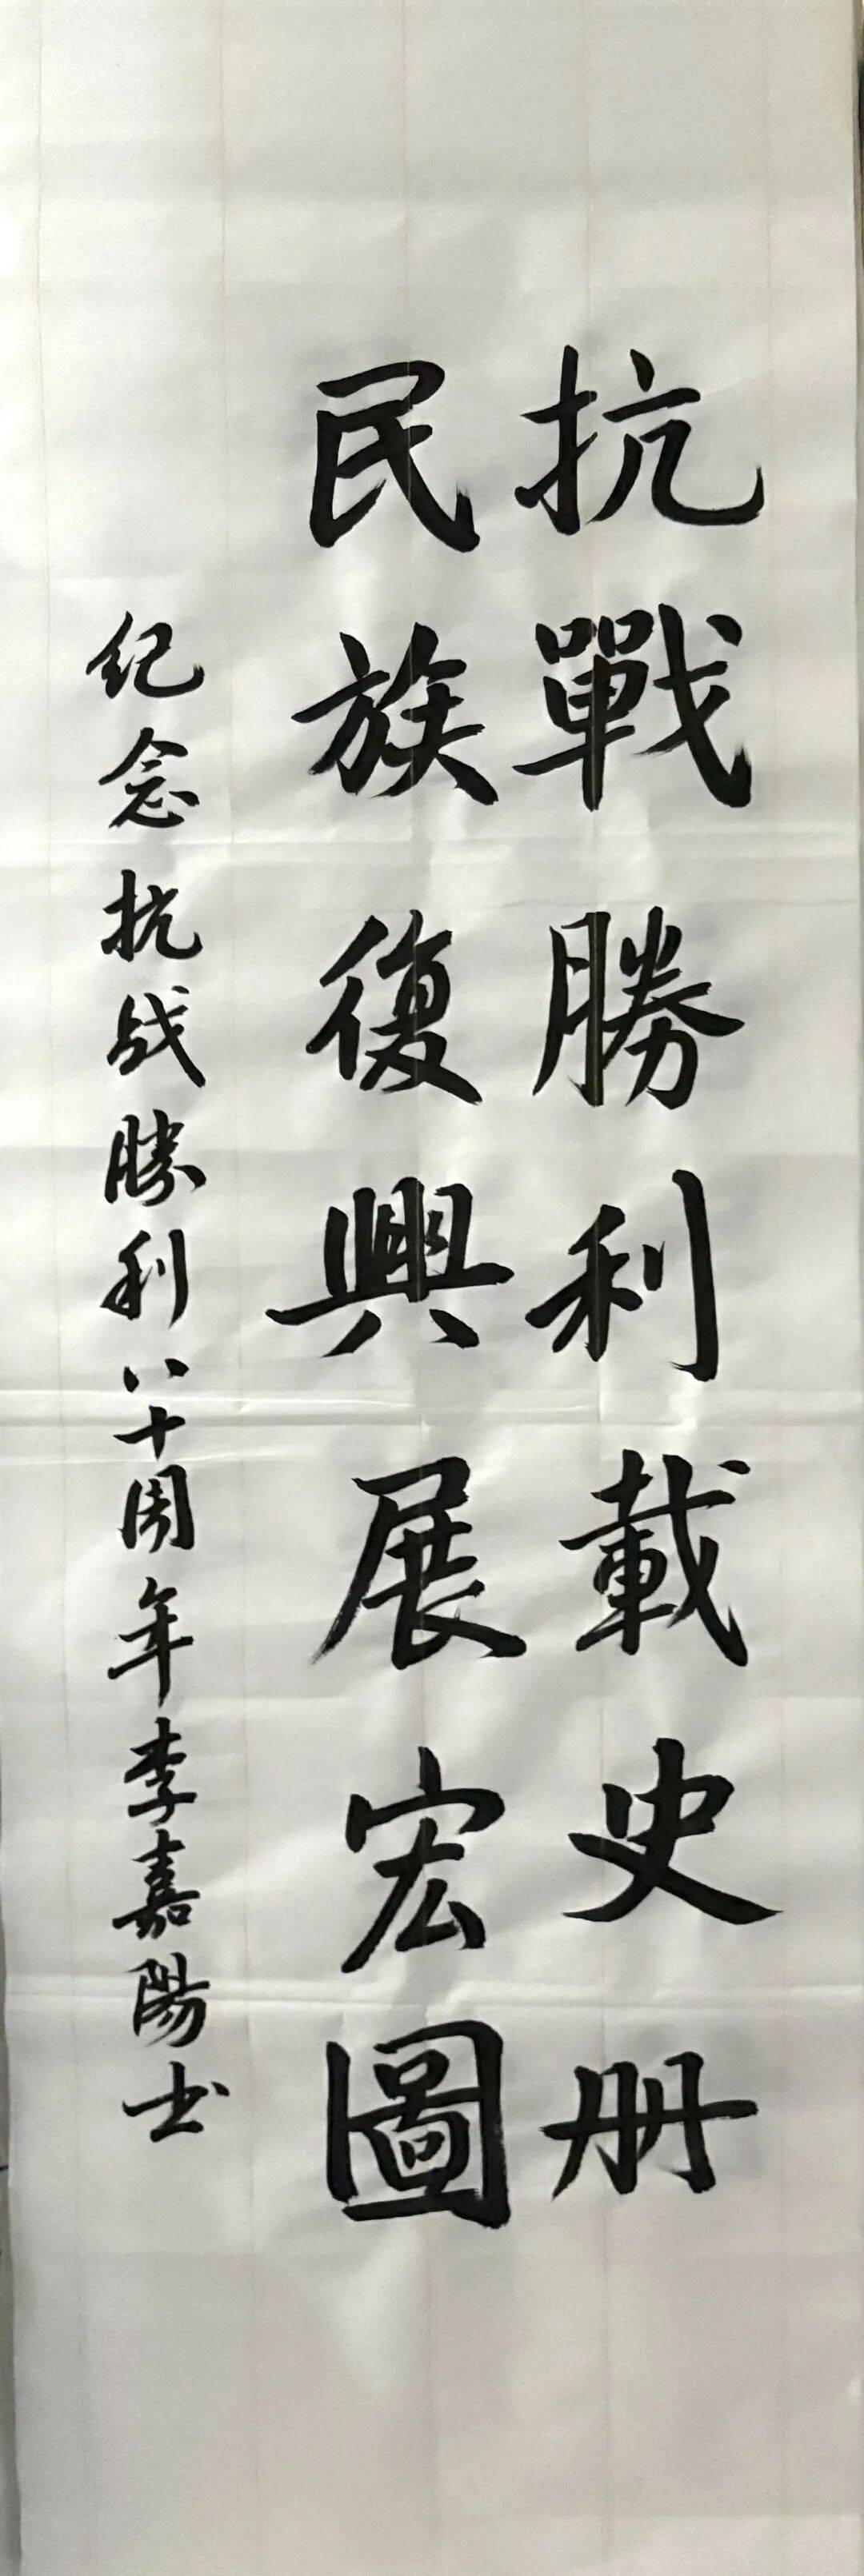 抗戰勝利載史册
民族復興展宏圖
纪念抗战勝利八十周年李嘉陽书